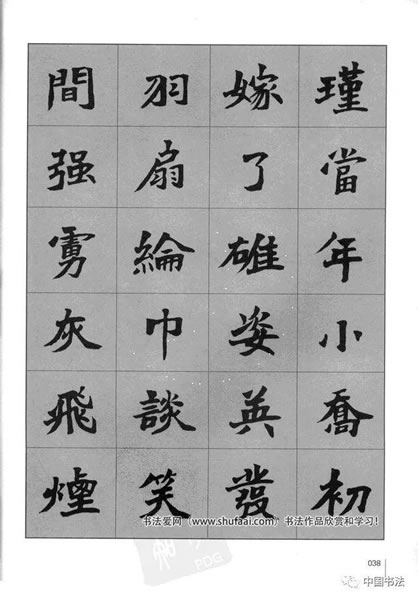 瑾當年小喬初
嫁了雄姿英發
羽扇綸巾談笑
間强虜灰飛煙
书法爱网（www.shufaai.com）书法作品欣赏和学习！
PDG
038
中国书法